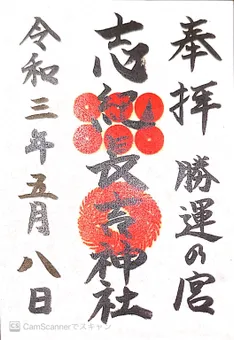 奉拝 勝運の宮
志紀長吉神社
令和三年五月八日
CamScannerでスキャン